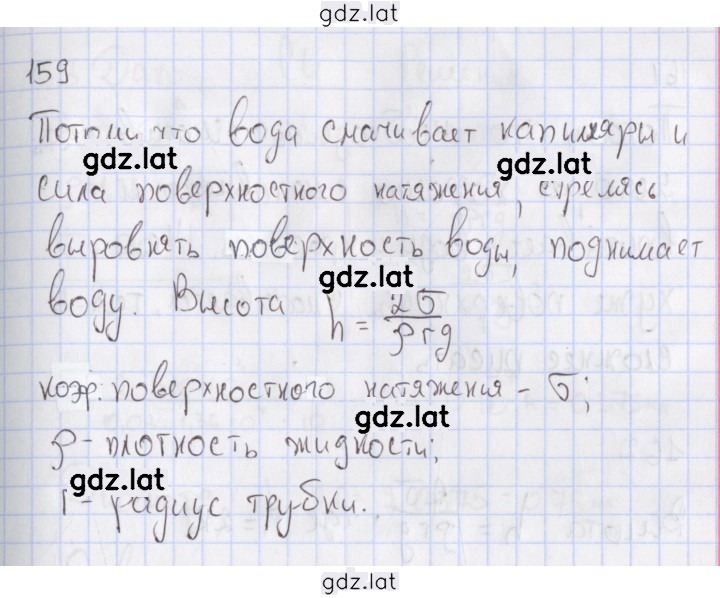 gdz.lat
159
Потому что вода смачивает капиляры и
gdz.lat
gdz.lat
сила поверхностного натяжения, стремясь
выровнять поверхность воды, поднимает
gdz.lat
воду. Высота h = 2σ/ρrg
коэф. поверхностного натяжения - σ;
gdz.lat
ρ - плотность жидкости;
gdz.lat
r - радиус трубки.
gdz.lat